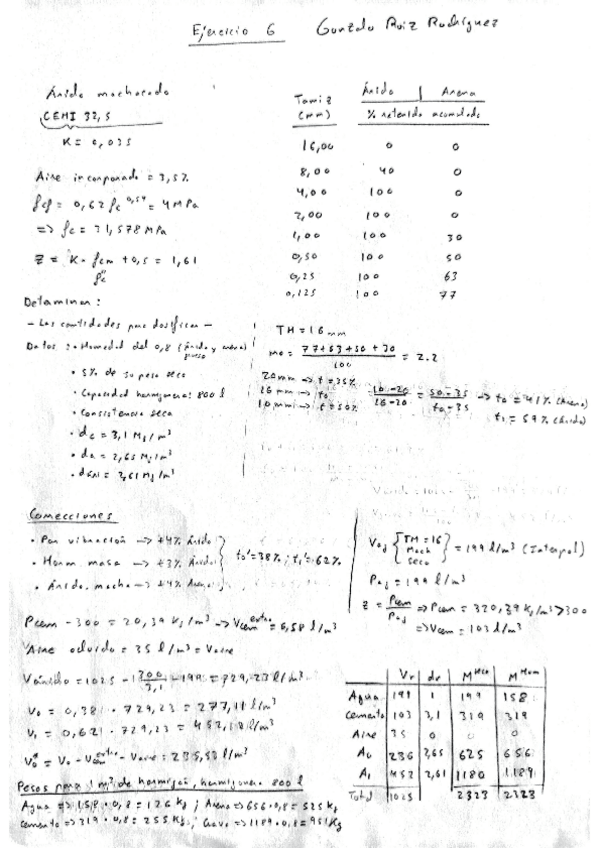 Ejercicio 6   Gonzalo Ruiz Rodríguez
Árido machacado
CEMI 32,5
K = 0,035
Aire incorporado = 3,5%
fcf = 0,62 fc^0,54 = 4 MPa
=> fc = 31,578 MPa
Z = K · fcm + 0,5 = 1,61
Tamiz (mm) | Árido | Arena
% retenido acumulado
16,00 0 0
8,00 40 0
4,00 100 0
2,00 100 0
1,00 100 30
0,50 100 50
0,25 100 63
0,125 100 77
Determinar:
- Las cantidades para dosificar -
Datos: · Humedad del 0,8 (árido grueso y arena)
· 5% de su peso seco
· Capacidad hormigonera: 800 l
· Consistencia seca
· dc = 3,1 Mg/m³
· dA = 2,65 Mg/m³
· dGA = 2,61 Mg/m³
TM = 16 mm
mo = (77+63+50+30)/100 = 2.2
20mm -> t = 35%
16 mm -> to
10 mm -> t = 50%
(10-20)/(16-20) = (50-35)/(to-35) -> to = 41% (Arena)
t1 = 59% (Árido)
Correcciones
· Por vibración -> +4% Árido
· Horm. masa -> +3% Árido
· Árido. macha -> +4% Arena
to' = 38% ; t1' = 62%
Vag { TM = 16 Mach seco } = 199 l/m³ (Interpol)
Pag = 199 l/m³
Z = Pcem/Pag => Pcem = 320,39 Kg/m³ > 300
=> Vcem = 103 l/m³
Pcem - 300 = 20,39 Kg/m³ -> Vcem^extra = 6,58 l/m³
Vaire ocluido = 35 l/m³ = Vaire
Váridos = 1025 - 300/3,1 - 199 = 729,23 l/m³
Vo = 0,38 · 729,23 = 277,11 l/m³
V1 = 0,62 · 729,23 = 452,12 l/m³
Vo" = Vo - Vcem^extra - Vaire = 235,53 l/m³
| Vr | dr | M^seca | M^hum
Agua 199 1 199 158
Cemento 103 3,1 319 319
Aire 35 0 0 0
Ao 236 2,65 625 656
A1 452 2,61 1180 1189
Total 1025 2323 2323
Pesos para 1 m³ de hormigón, hormigonera 800 l
Agua => 158 · 0,8 = 126 Kg ; Arena => 656 · 0,8 = 525 Kg
Cemento => 319 · 0,8 = 255 Kg ; Grava => 1189 · 0,8 = 951 Kg